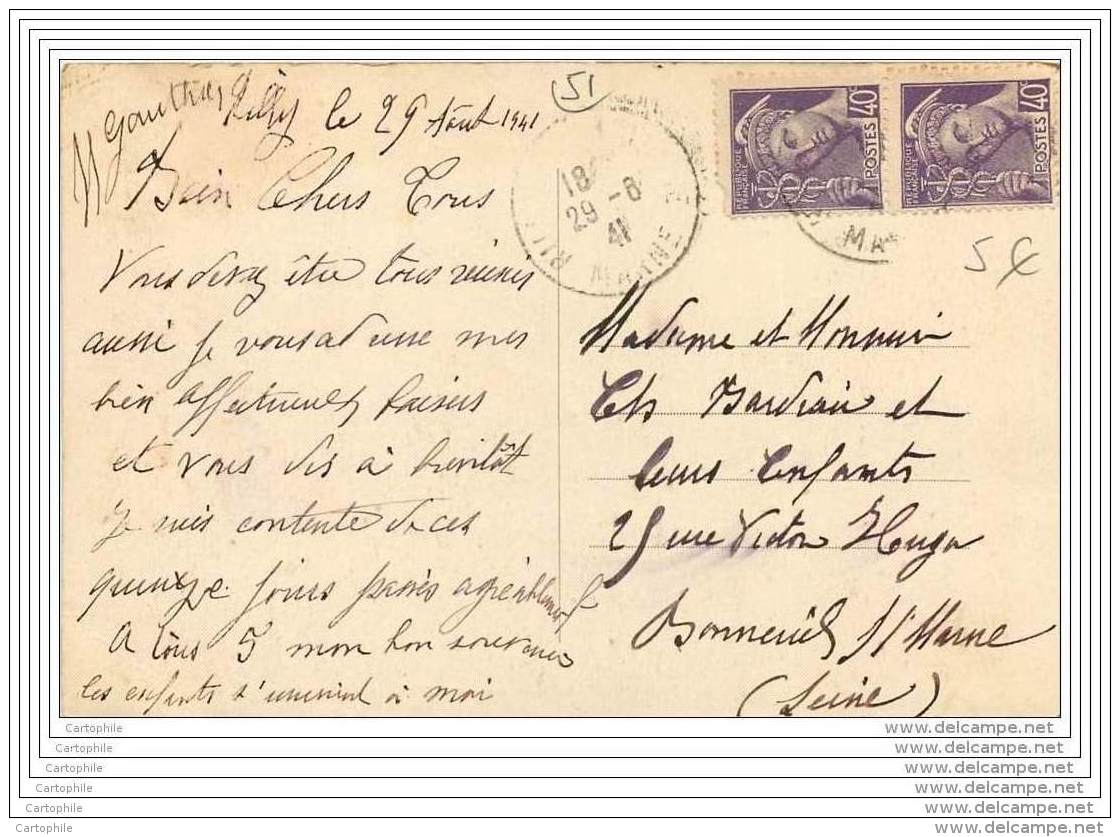 Gauthier Rilly le 29 Août 1941
51
Bien Chers Tous
Vous devez être tous réunis
aussi je vous adresse mes
bien affectueux baisers
et vous dis à bientôt
Je suis contente de ces
quinze jours passés agréablement
A tous 5 mon bon souvenir
les enfants s'unissent à moi
18
29 -8
41
MARNE
MA
RÉPUBLIQUE
FRANÇAISE
POSTES 40c
RÉPUBLIQUE
FRANÇAISE
POSTES 40c
5€
Madame et Monsieur
Ch Bardiau et
leurs Enfants
25 rue Victor Hugo
Bonneuil s/ Marne
(Seine)
Cartophile www.delcampe.net
Cartophile www.delcampe.net
Cartophile www.delcampe.net
Cartophile www.delcampe.net
Cartophile www.delcampe.net
Cartophile www.delcampe.net